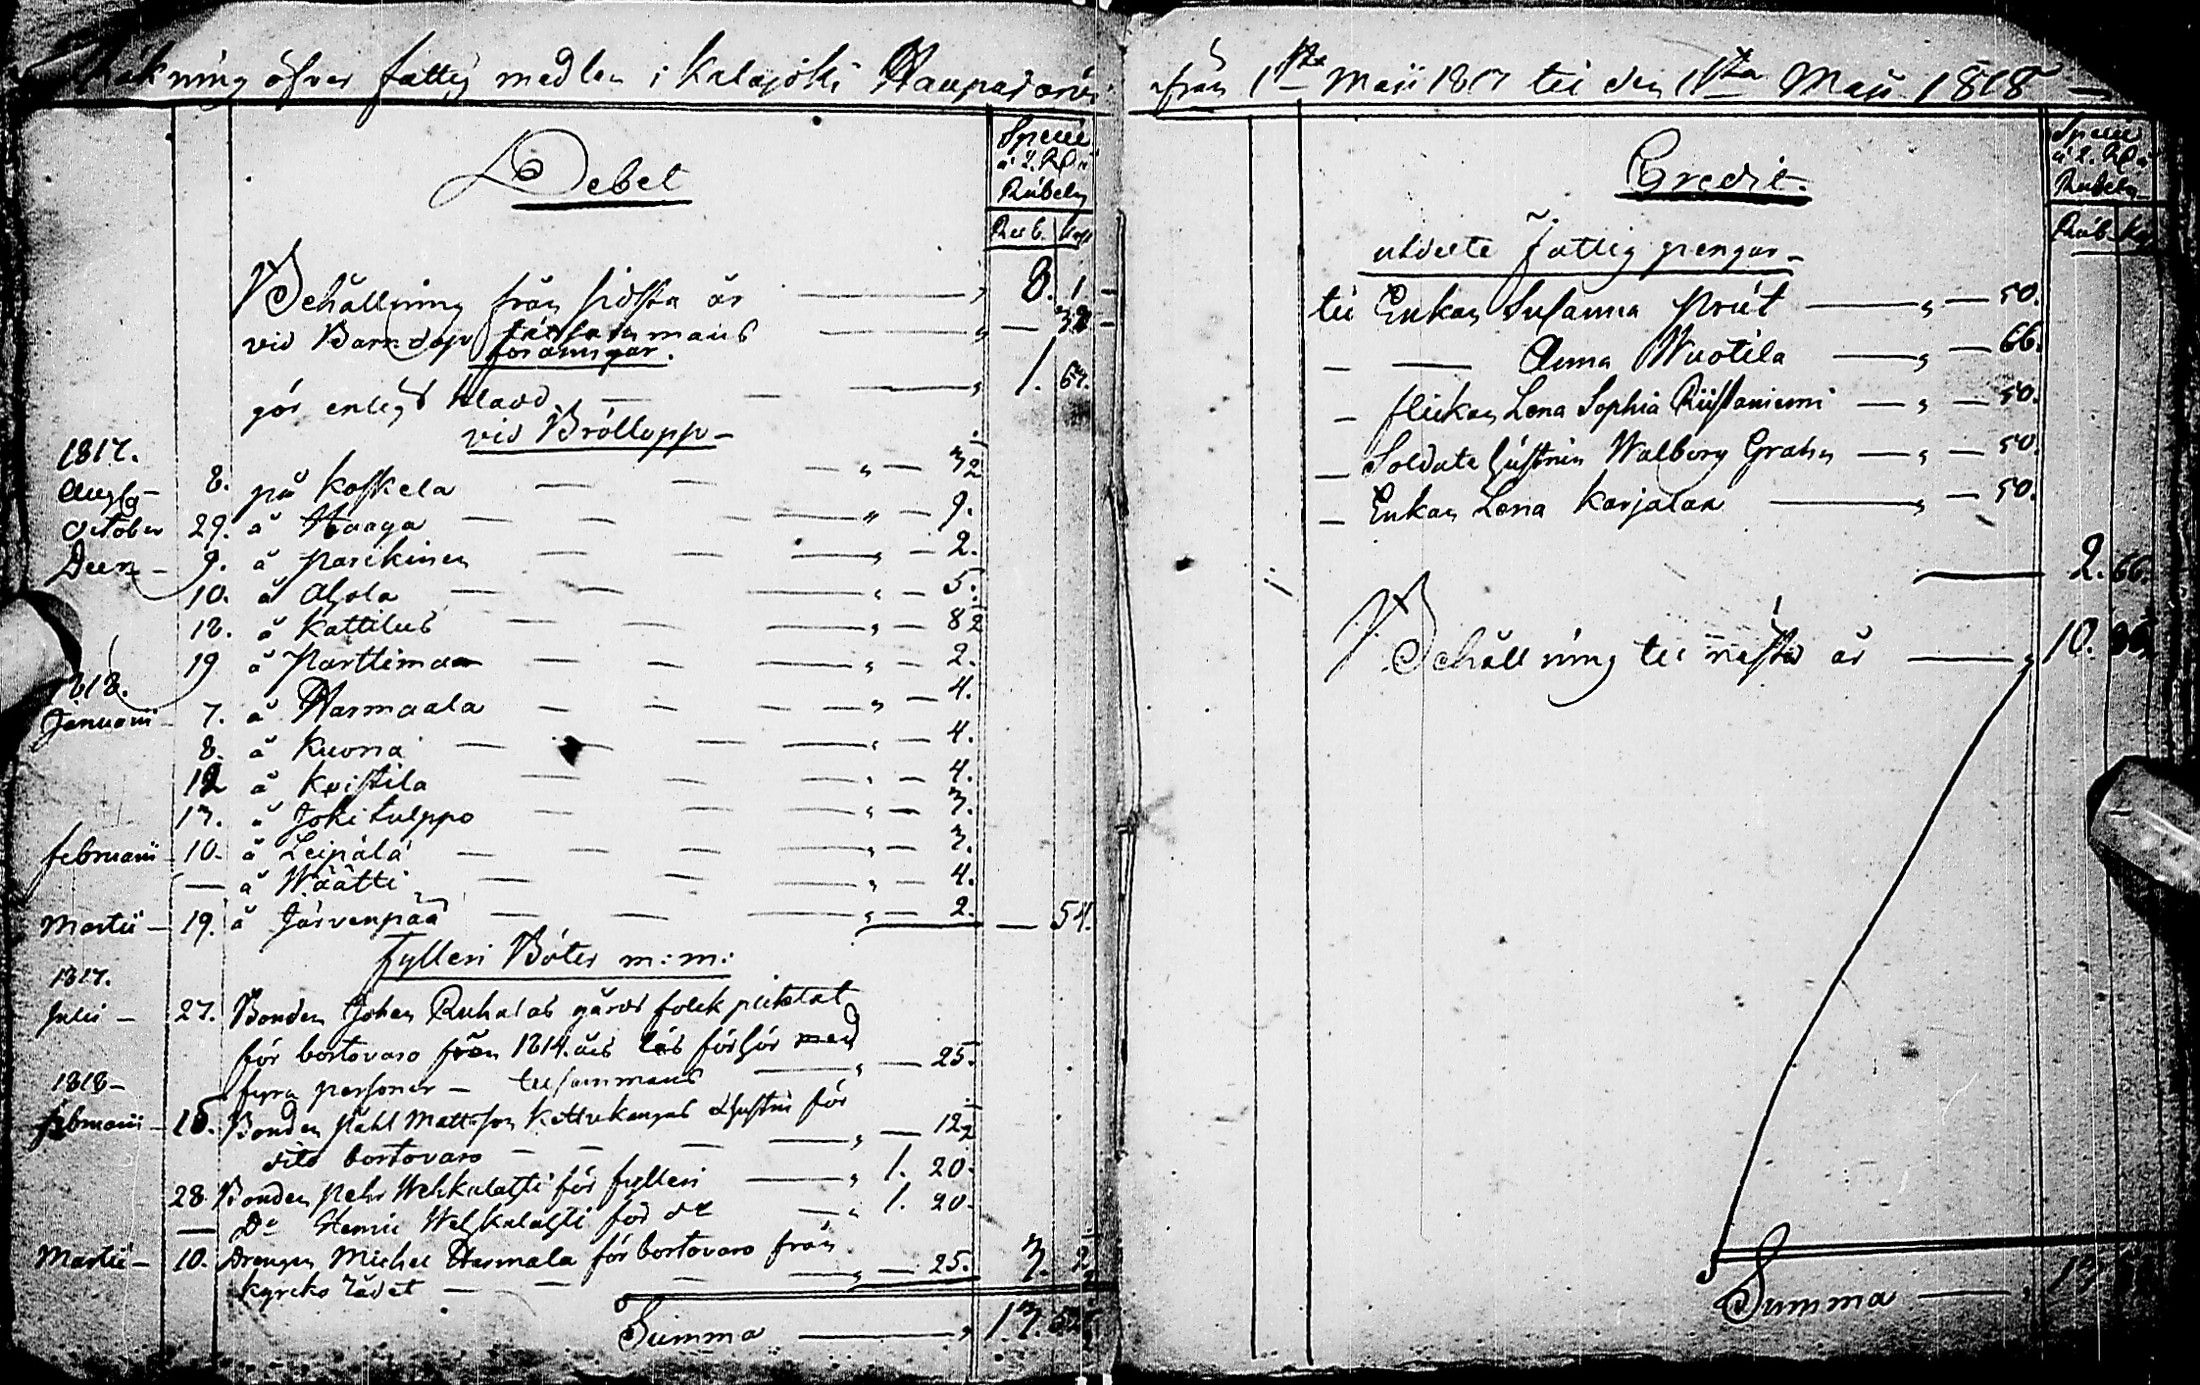 Räkning öfver fattig medlen i Kalajoki Haapajärvi från 1sta Maji 1817 till den 1sta Maji 1818 —
Debet
Specie
à 2. RD
Rubeln
Rub. Kop
Behållning från sidsta år — „ 8. 1
vid Barndop
gör enligt — „ 1. 67.
vid Brölloppp —
1817.
Aug — 8. på Koskela — — — „ — 3½
October 29. å Haaga — — — „ — 9.
Decr — 9. å Parikinen — — — „ — 2.
10. å Ahola — — — „ — 5.
12. å Kattilus — — — „ — 8½
19 å Parttimaa — — — „ — 2.
1818.
Januarii — 7. å Harmaala — — — „ — 4.
8. å Kuona — — — „ — 4.
12 å Koistila — — — „ — 4.
13. å Jokitulppo — — — „ — 3.
februarii — 10. å Leipälä — — — „ — 3.
— å Wäätti — — — „ — 4.
Martii — 19. å Järvenpää — — — „ — 2. — 54.
fylleri Böter m: m:
1817.
Julii — 27. Bonden Johan Ruhalas gårds folck pliktat
för bortovaro från 1814. års läs förhör med
fyra personer — tillsammans — „ — 25.
1818 —
februarii — 15. Bonden Påhl Mattsson Kettukangas Hustru för
dito bortovaro — — — „ — 12½
28. Bonden Pehr Wehkalahti för fylleri — „ 1. 20.
— Do Henric Wehkalahti för do — „ 1. 20.
Martii — 10. Drengen Michel Harmala för bortovaro från
kyrko rådet — — — „ — 25. 3. 2½
Summa — „ 13.
Credit.
Specie
à 2. RD
Rubeln
Rub. Kop
utdelte Fattig pengar —
till Enkan Susanna Priit — „ — 50.
— — Anna Wuotila — „ — 66.
— flickan Lena Sophia Riistaniemi — „ — 50.
— Soldate hustrun Walborg Grahn — „ — 50.
— Enkan Lena Karjalan — „ — 50.
— 2. 66.
Behållning till nästa år — „ 10.
Summa — „ 13.